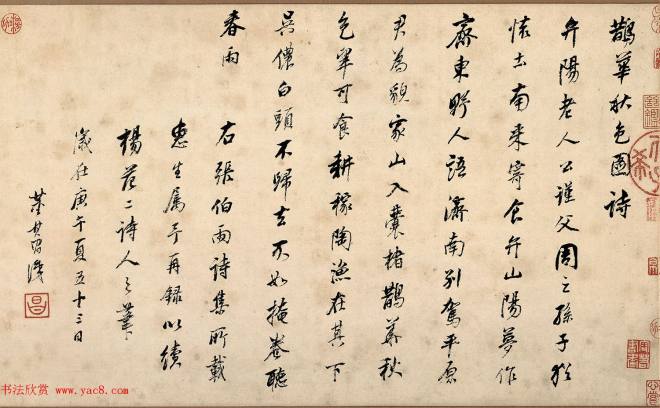 鵲華秋色圖詩
弁陽老人公謹父周之孫子猶
懷土南來寄食弁山陽夢作
齊東野人語濟南別駕平原
君為貌家山入囊楮鵲華秋
色翠可食耕稼陶漁在其下
吳儂白頭不歸去不如掩卷聽
春雨
右張伯雨詩集所載
惠生屬予再錄以續
楊范二詩人之筆
歲在庚午夏五十三日
董其昌識
昌
书法欣赏 www.yac8.com